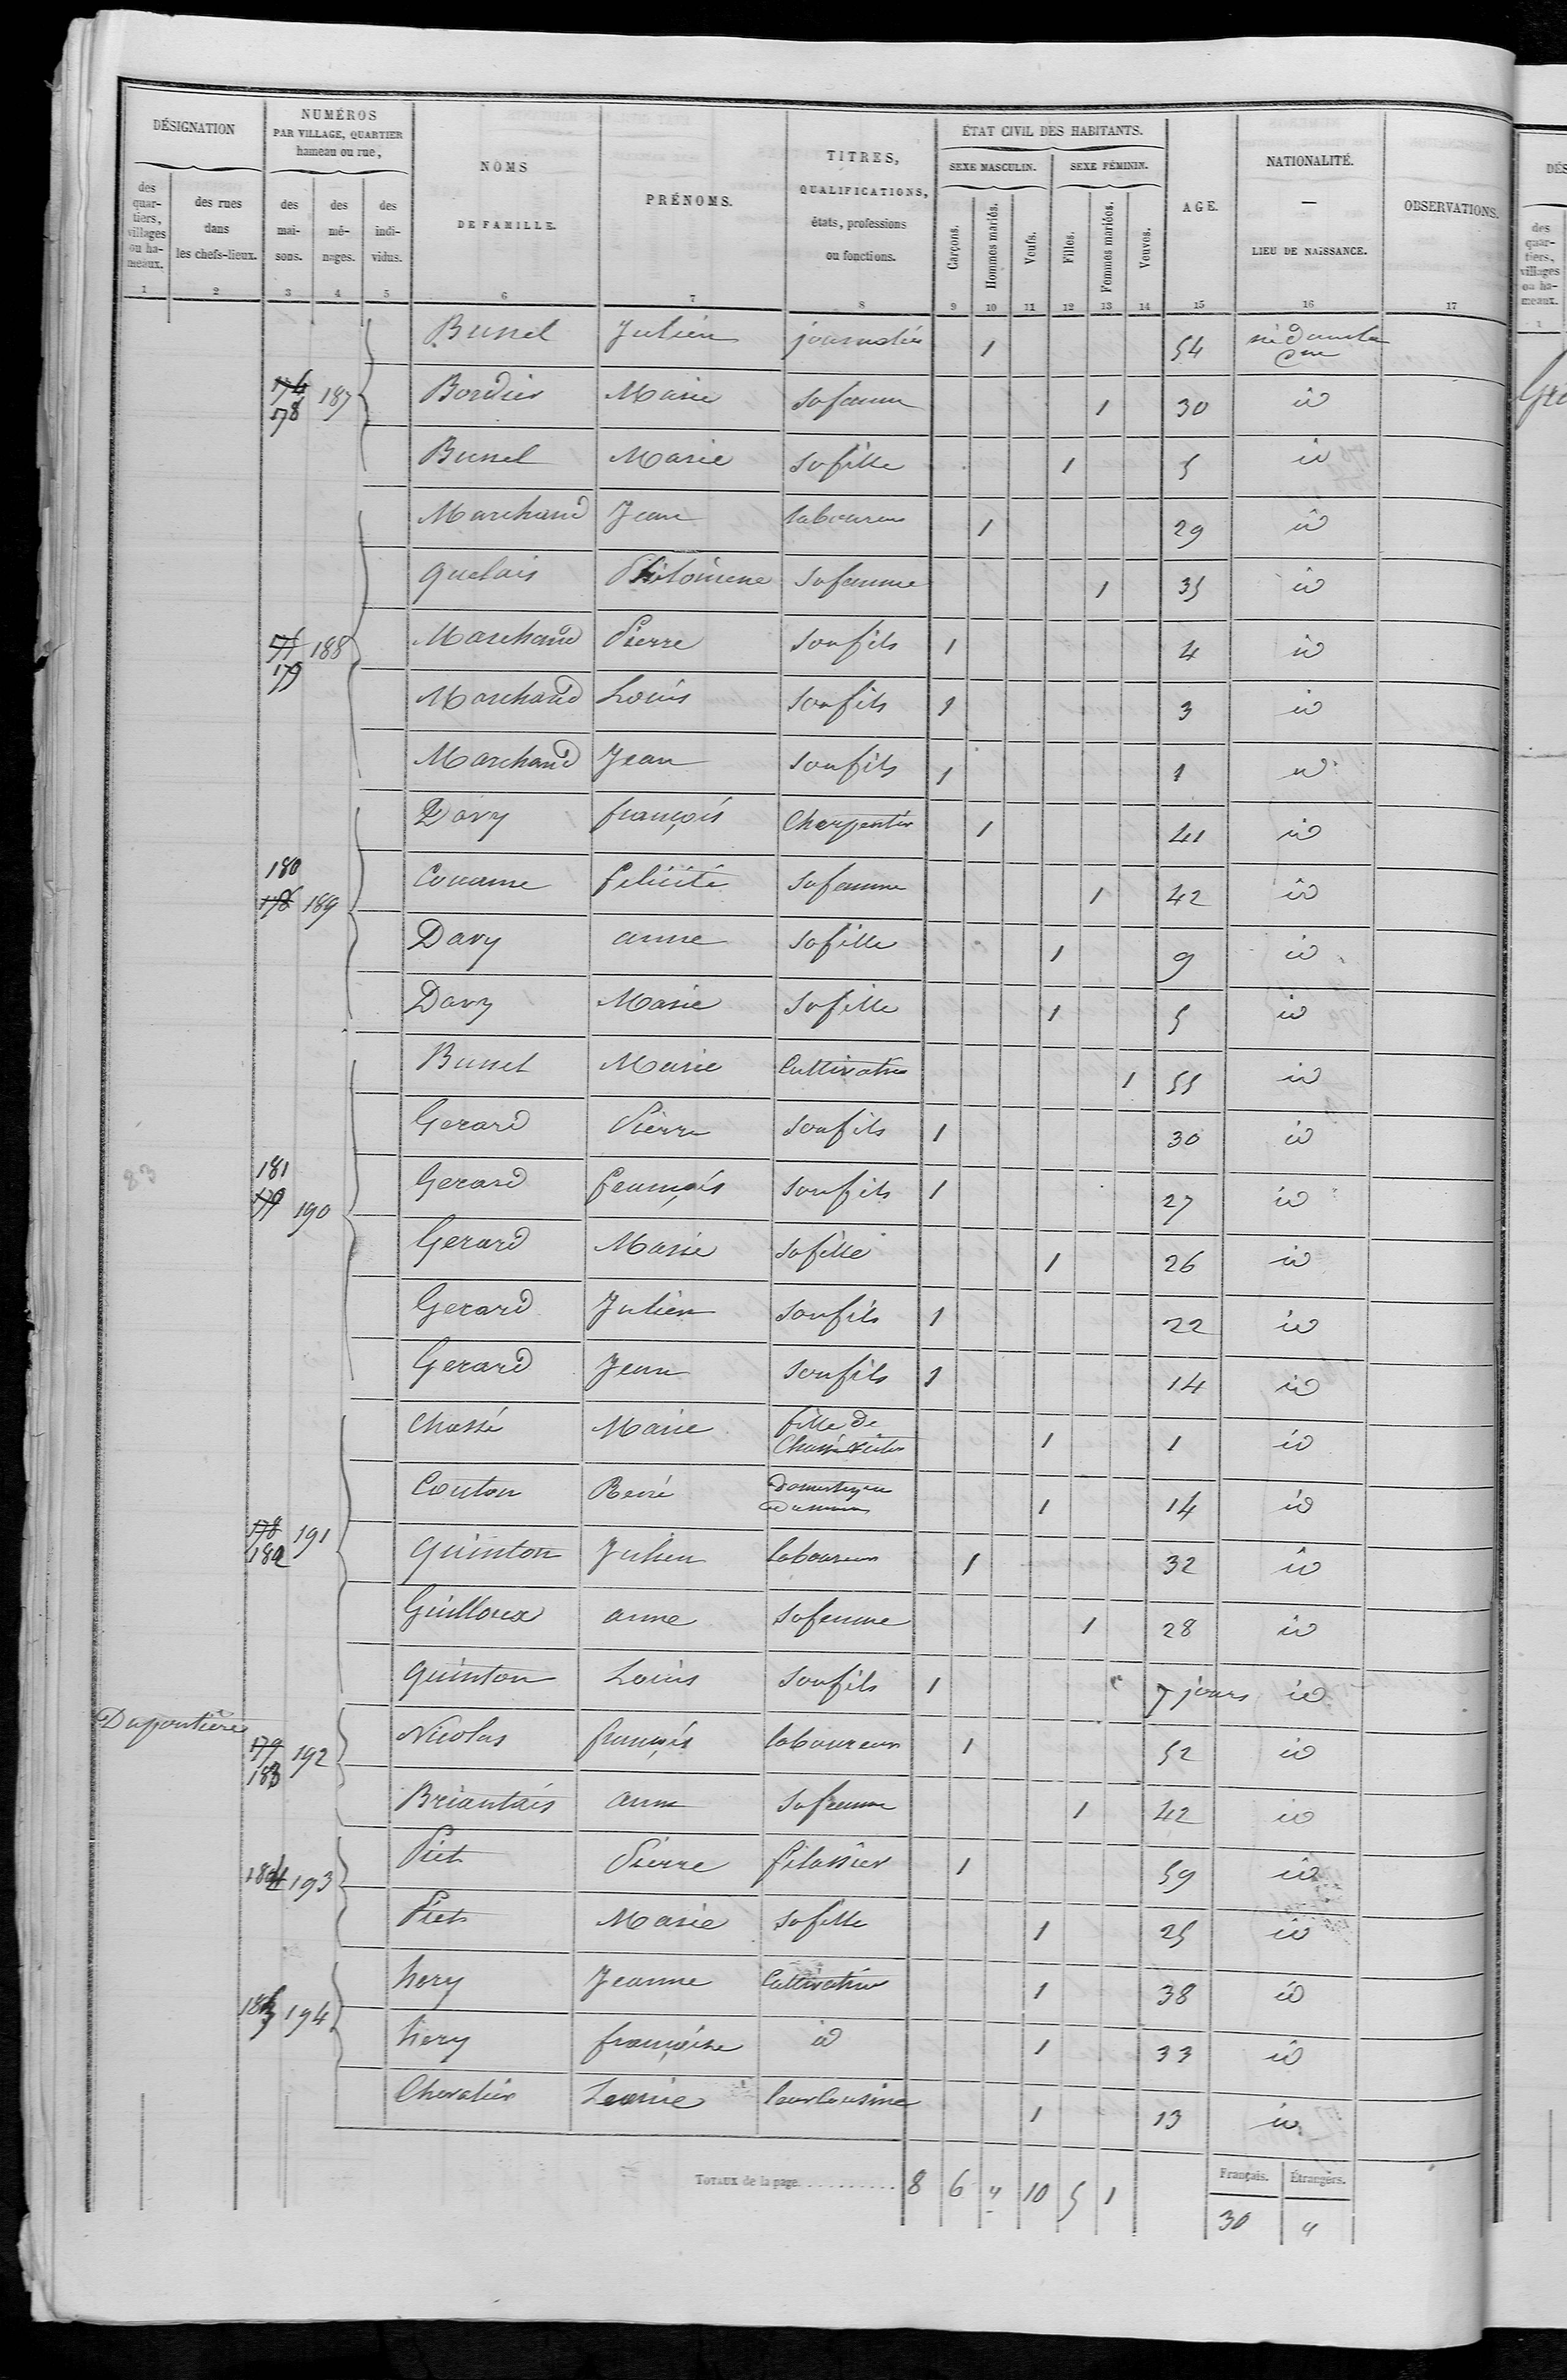 DÉSIGNATION
NUMÉROS
PAR VILLAGE, QUARTIER
hameau ou rue,
NOMS
DE FAMILLE.
PRÉNOMS.
TITRES,
QUALIFICATIONS,
états, professions
ou fonctions.
ÉTAT CIVIL DES HABITANTS.
SEXE MASCULIN. SEXE FÉMININ.
AGE.
NATIONALITÉ.
—
LIEU DE NAISSANCE.
OBSERVATIONS.
des quartiers, villages ou hameaux.
des rues dans les chefs-lieux.
des maisons.
des ménages.
des individus.
Garçons. Hommes mariés. Veufs. Filles. Femmes mariées. Veuves.
1 2 3 4 5 6 7 8 9 10 11 12 13 14 15 16 17
Bunel Julien journalier 1 54 né dans la Cne
178 187 Bordier Marie sa femme 1 30 id
Bunel Marie sa fille 1 5 id
Marchand Jean laboureur 1 29 id
Quelais Philomene sa femme 1 35 id
179 188 Marchand Pierre son fils 1 4 id
Marchand Louis son fils 1 3 id
Marchand Jean son fils 1 1 id
Davy françois Charpentier 1 41 id
180 189 Couanne felicité sa femme 1 42 id
Davy anne sa fille 1 9 id
Davy Marie sa fille 1 5 id
Bunel Marie Cultivatrice 1 55 id
Gerard Pierre son fils 1 30 id
83
181 190 Gerard françois son fils 1 27 id
Gerard Marie sa fille 1 26 id
Gerard Julien son fils 1 22 id
Gerard Jean son fils 1 14 id
Chassé Marie fille de Chassé 1 1 id
Couton René domestique 1 14 id
178 182 191 Quinton Julien laboureur 1 32 id
Guilloux anne sa femme 1 28 id
Quinton Louis son fils 1 7 jours id
Dupontière
179 183 192 Nicolas françois laboureur 1 52 id
Briantais anne sa femme 1 42 id
184 193 Piet Pierre filassier 1 59 id
Piet Marie sa fille 1 25 id
hery Jeanne Cultivatrice 1 38 id
194 hery françoise id 1 33 id
Chevalier Leonie leur Cousine 1 13 id
TOTAUX de la page 8 6 " 10 5 1
Français. Étrangers.
30 "